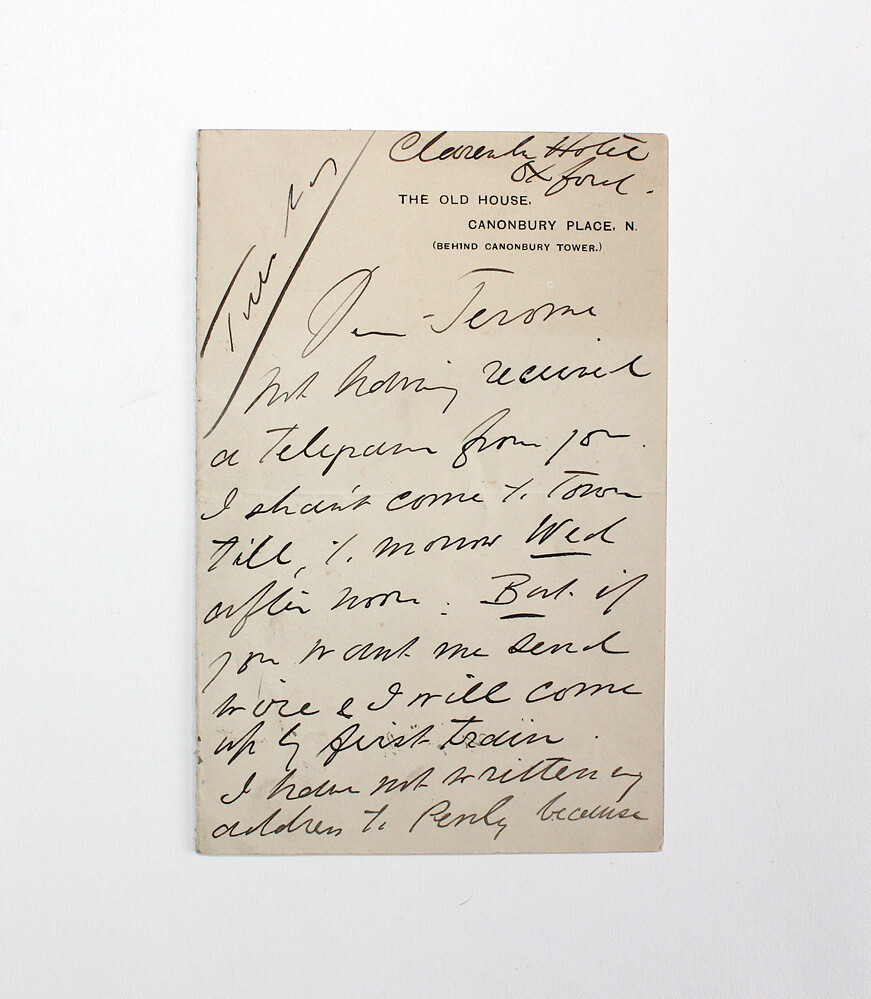 Clarendn Hotel
Oxford.
THE OLD HOUSE,
CANONBURY PLACE, N.
(BEHIND CANONBURY TOWER.)
Tues day
Dear Jerome
Not having received
a Telegram from you.
I shan't come to Town
till, to morrow Wed
after noon. But if
you want me send
wire & I will come
up by first train.
I have not written my
address to because